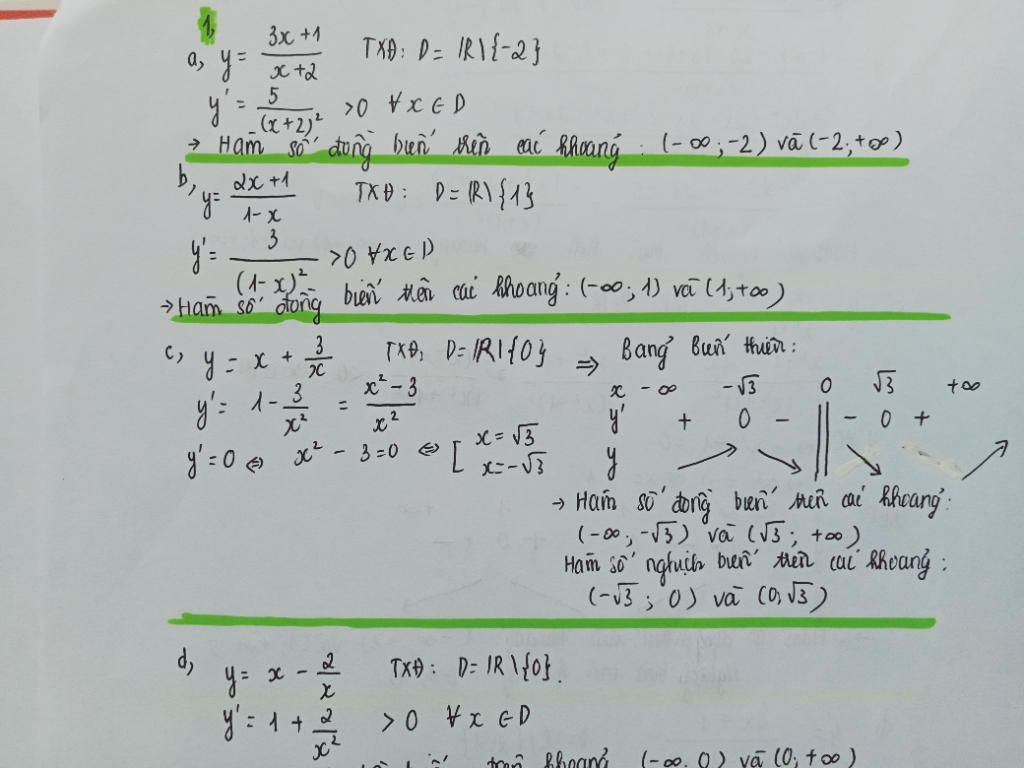 1,
a, y = (3x+1)/(x+2) TXĐ: D = |R\{-2}
y' = 5/(x+2)² >0 ∀x ∈ D
→ Hàm số đồng biến trên các khoảng: (-∞;-2) và (-2;+∞)
b, y = (2x+1)/(1-x) TXĐ: D = |R\{1}
y' = 3/(1-x)² >0 ∀x ∈ D
→ Hàm số đồng biến trên các khoảng: (-∞;1) và (1;+∞)
c, y = x + 3/x TXĐ: D = |R\{0}
y' = 1 - 3/x² = (x²-3)/x²
y' = 0 ⇔ x² - 3 = 0 ⇔ [ x = √3
x = -√3
⇒ Bảng biến thiên:
x -∞ -√3 0 √3 +∞
y' + 0 - || - 0 +
y ↗ ↘ || ↘ ↗
→ Hàm số đồng biến trên các khoảng:
(-∞;-√3) và (√3; +∞)
Hàm số nghịch biến trên các khoảng:
(-√3; 0) và (0;√3)
d, y = x - 2/x TXĐ: D = |R\{0}.
y' = 1 + 2/x² > 0 ∀x ∈ D
biến trên khoảng (-∞;0) và (0;+∞)